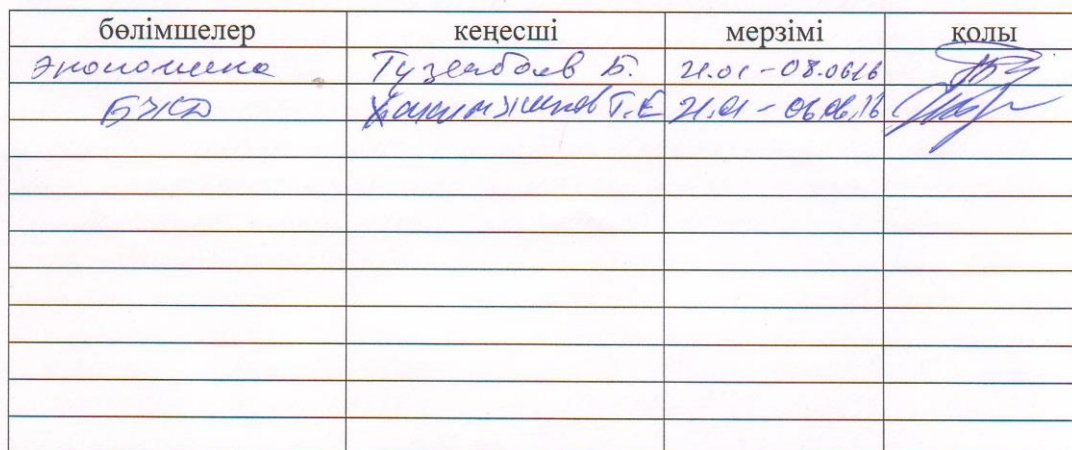 бөлімшелер кеңесші мерзімі қолы
экономика Тузелбаев Б. 21.01-08.0616
БЖД Хакимжанов Т.Е 21.01-06.06.16